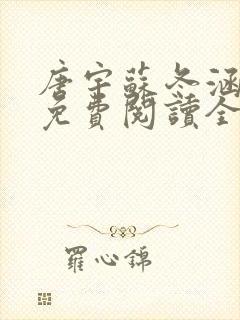 唐宇蘇冬涵
免費閱讀全
羅心錦